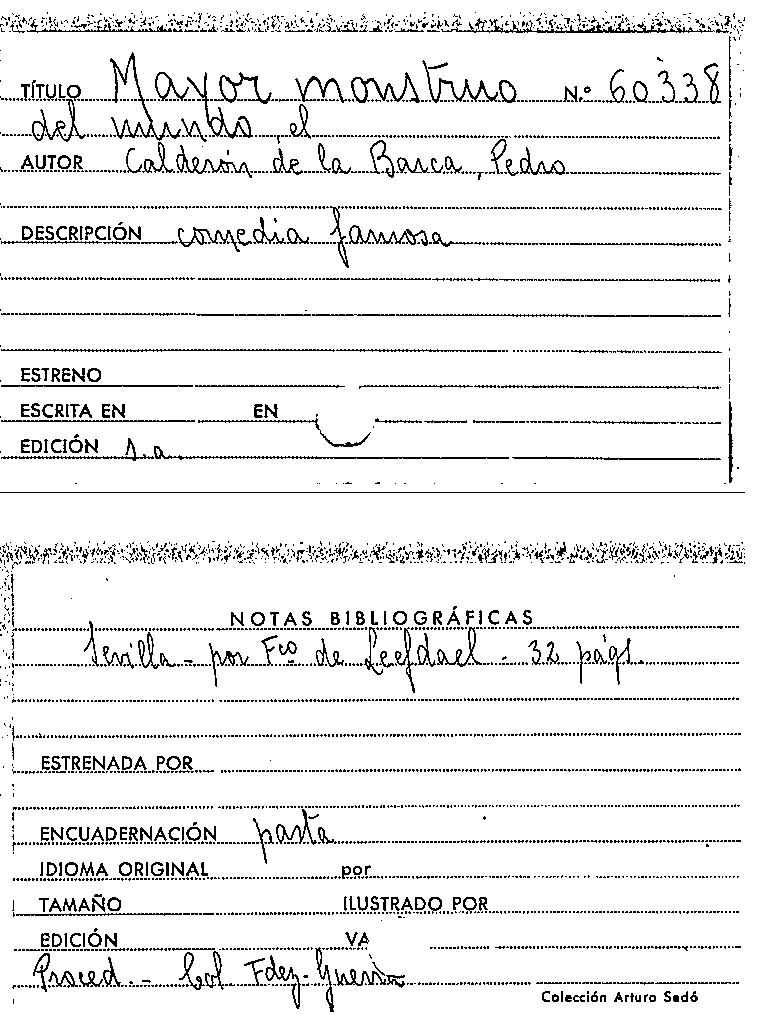 TÍTULO Mayor monstruo N.º 60338
del mundo, el
AUTOR Calderón de la Barca, Pedro
DESCRIPCIÓN comedia famosa
ESTRENO
ESCRITA EN EN
EDICIÓN s.a.
NOTAS BIBLIOGRÁFICAS
Sevilla - por Fco de Leefdael - 32 págs.
ESTRENADA POR
ENCUADERNACIÓN pasta
IDIOMA ORIGINAL por
TAMAÑO ILUSTRADO POR
EDICIÓN VA
Proced. - Col. Fdez-Guerra
Colección Arturo Sedó